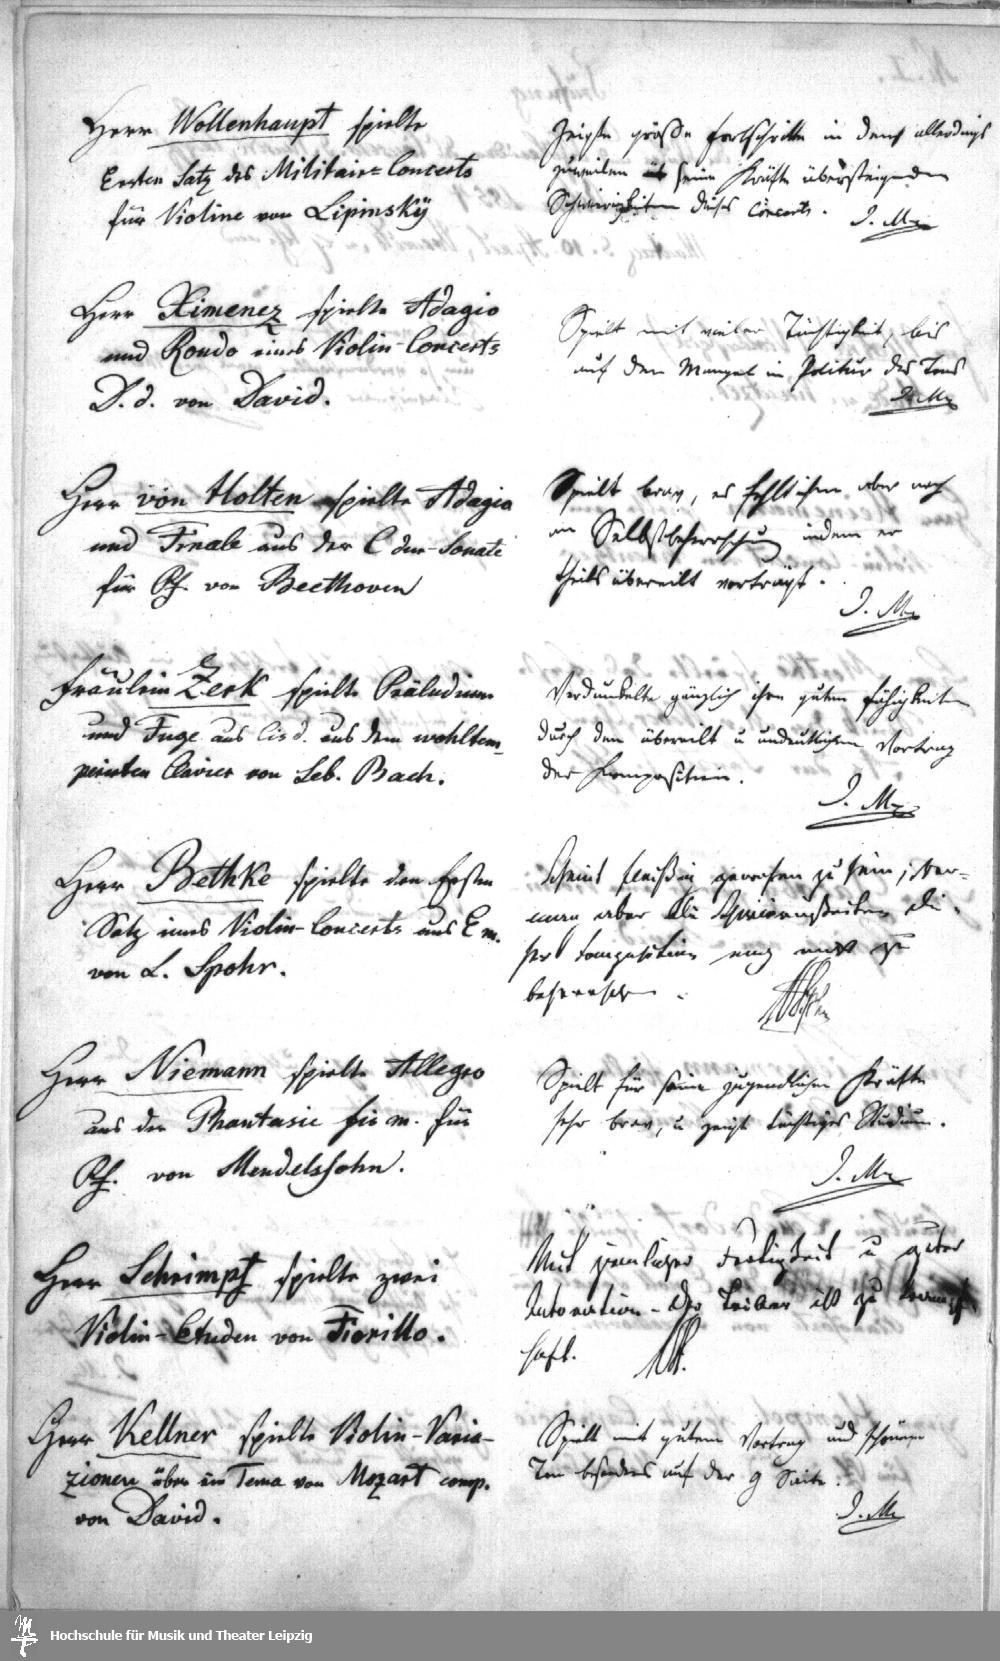 Herr Wollenhaupt spielte
Ersten Satz des Militair=Concerts
für Violine von Lipinsky
Zeigte große Fortschritte in den allerdings
zuweilen seine Kräfte übersteigenden
Schwierigkeiten dieses Concerts.
I. M.
Herr Ximenez spielte Adagio
und Rondo eines Violin-Concerts
D. d. von David.
Spielt mit vieler Tüchtigkeit, bis
auf den Mangel in Politur des Tons
I. M.
Herr von Holten spielte Adagio
und Finale aus der C dur-Sonate
für Pf. von Beethoven
Spielt brav, es fehlt ihm aber noch
an Selbstbeherrschung indem er
theils übereilt vorträgt.
I. M.
Fräulein Zerk spielte Präludium
und Fuge aus Cis d. aus dem wohltem-
perirten Clavier von Seb. Bach.
Verdunkelte gänzlich ihre guten Fähigkeiten
durch den übereilt u undeutlichen Vortrag
der Composition.
I. M.
Herr Bethke spielte den Ersten
Satz eines Violin-Concerts aus E m.
von L. Spohr.
Scheint fleißig gewesen zu sein, ver-
mag aber die Schwierigkeiten die-
ser Composition noch nicht zu
beherrschen.
Herr Niemann spielte Allegro
aus der Phantasie fis m. für
Pf. von Mendelssohn.
Spielt für seine jugendlichen Kräfte
sehr brav, u zeigt tüchtiges Studium.
I. M.
Herr Schrimpf spielte zwei
Violin-Etuden von Fiorillo.
Mit ziemlicher Fertigkeit u guter
Intonation - Der Triller ist zu krampf
haft.
Herr Kellner spielte Violin-Varia-
zionen über ein Tema von Mozart comp.
von David.
Spielt mit gutem Vortrag und schönem
Ton besonders auf der g Saite.
I. M.
Hochschule für Musik und Theater Leipzig